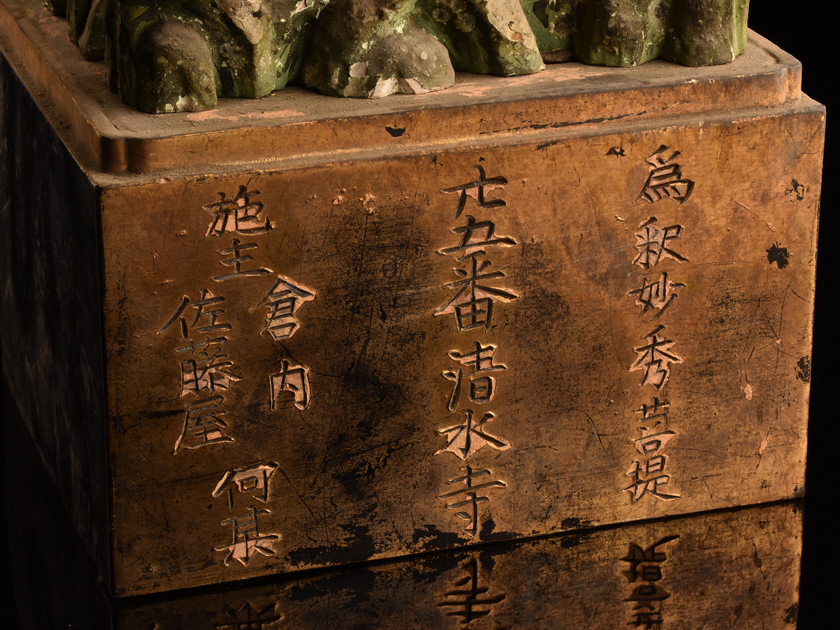 爲釈妙秀菩提
廿五番清水寺
施主
倉内
佐藤屋
何某